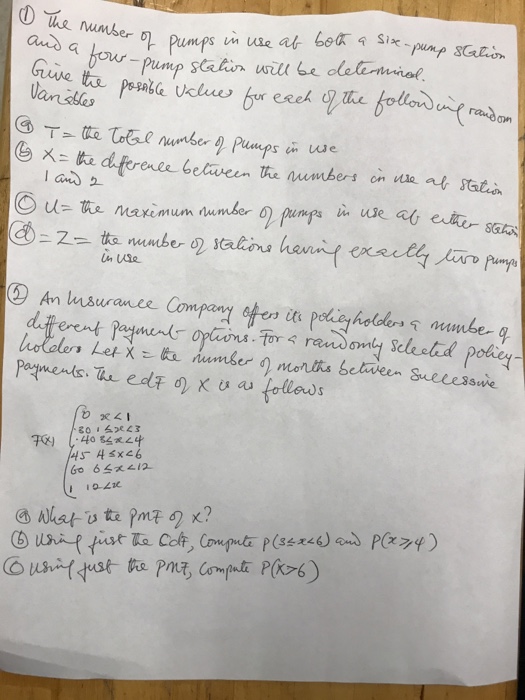 ① The number of pumps in use at both a six-pump station
and a four-pump station will be determined.
Give the possible values for each of the following random
Variables
ⓐ T = the total number of pumps in use
ⓑ X = the difference between the numbers in use at station
1 and 2
ⓒ U = the maximum number of pumps in use at either station
ⓓ = Z = the number of stations having exactly two pumps
in use
② An Insurance Company offers its policyholders a number of
different payment options. For a randomly selected policy-
holders Let X = the number of months between successive
payments. The cdf of X is as follows
F(x) { 0 x<1
.30 1≤x<3
.40 3≤x<4
.45 4≤x<6
.60 6≤x<12
1 12≤x
ⓐ What is the PMF of X?
ⓑ Using just the Cdf, Compute P(3≤x<6) and P(x≥4)
ⓒ using just the PMF, Compute P(X>6)